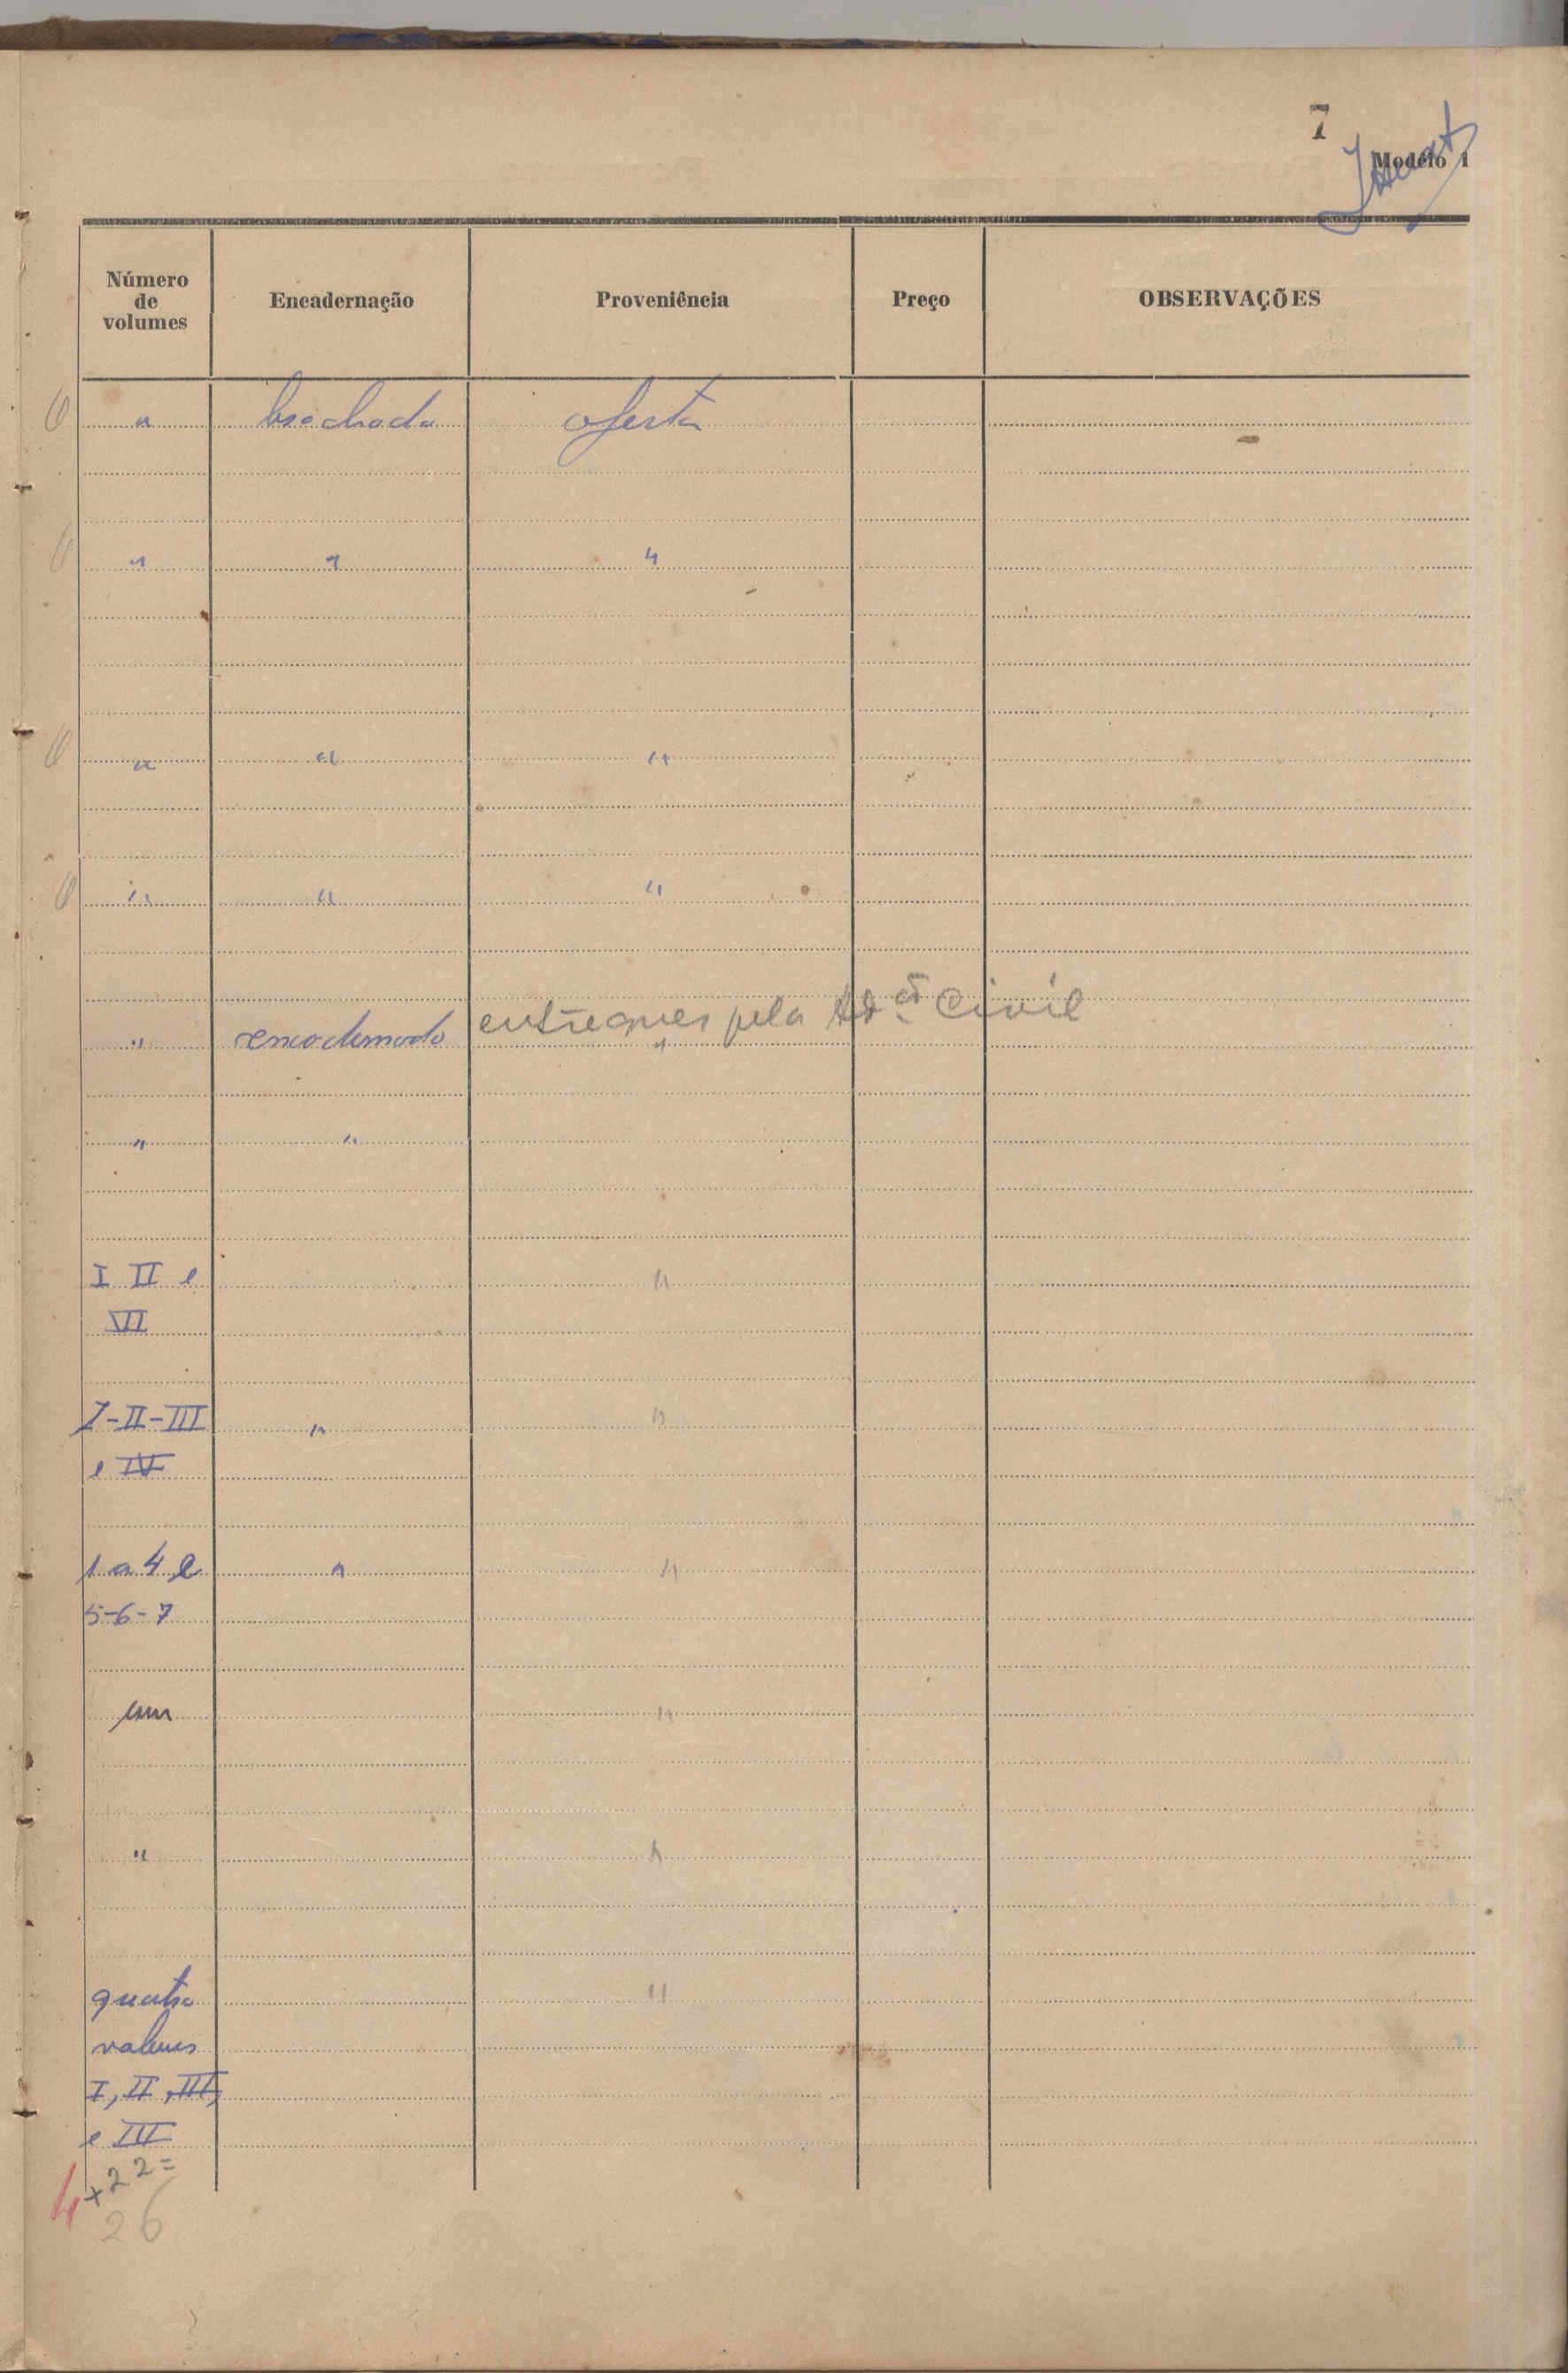 7
Modêlo 1
Número de volumes Encadernação Proveniência Preço OBSERVAÇÕES
" brochado oferta
" " "
" " "
" " "
entregues pela Civil
" encadernado "
" "
I II e "
VII
I-II-III " "
e IV
1 a 4 e " "
5-6-7
um "
" "
quatro "
I, II, III,
e IV
4 + 22 =
26